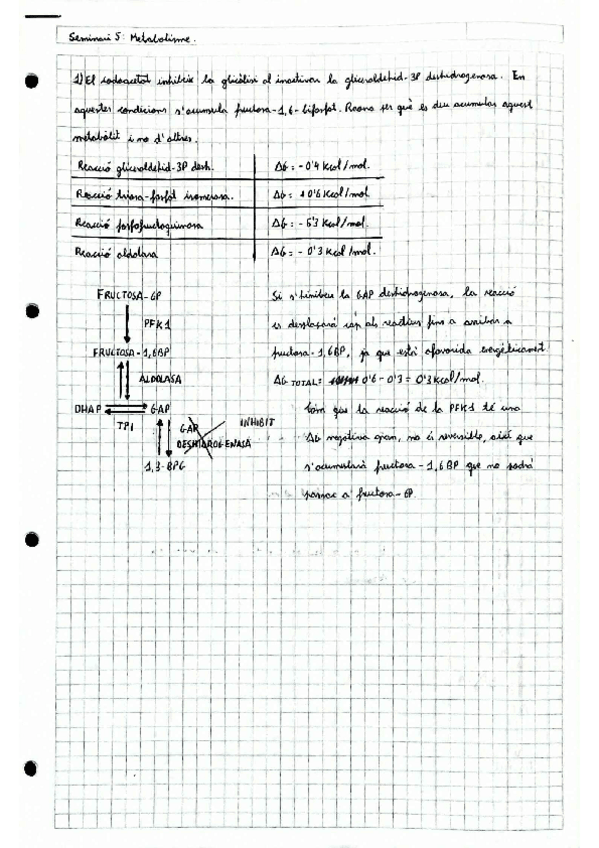 Seminari 5: Metabolisme.
1) El iodoacetat inhibeix la glicòlisi al inactivar la gliceraldehid-3P deshidrogenasa. En
aquestes condicions s'acumula fructosa-1,6-bifosfat. Raona per què es deu acumular aquest
metabòlit i no d'altres.
Reacció gliceraldehid-3P desh. ΔG = -0'4 Kcal/mol.
Reacció triosa-fosfat isomerasa. ΔG = +0'6 Kcal/mol
Reacció fosfofructoquinasa ΔG = -6'3 Kcal/mol.
Reacció aldolasa ΔG = -0'3 Kcal/mol.
FRUCTOSA-6P
PFK1
FRUCTOSA-1,6BP
ALDOLASA
DHAP GAP
TPI
GAP
DESHIDROGENASA
INHIBIT
1,3-BPG
Si s'inhibeix la GAP deshidrogenasa, la reacció
es desplaçarà cap als reactius fins a arribar a
fructosa-1,6BP, ja que està afavorida energèticament
ΔG TOTAL = 0'6 - 0'3 = 0'3 Kcal/mol.
Com que la reacció de la PFK1 té una
ΔG negativa gran, no és reversible, així que
s'acumularà fructosa-1,6BP que no podrà
passar a fructosa-6P.